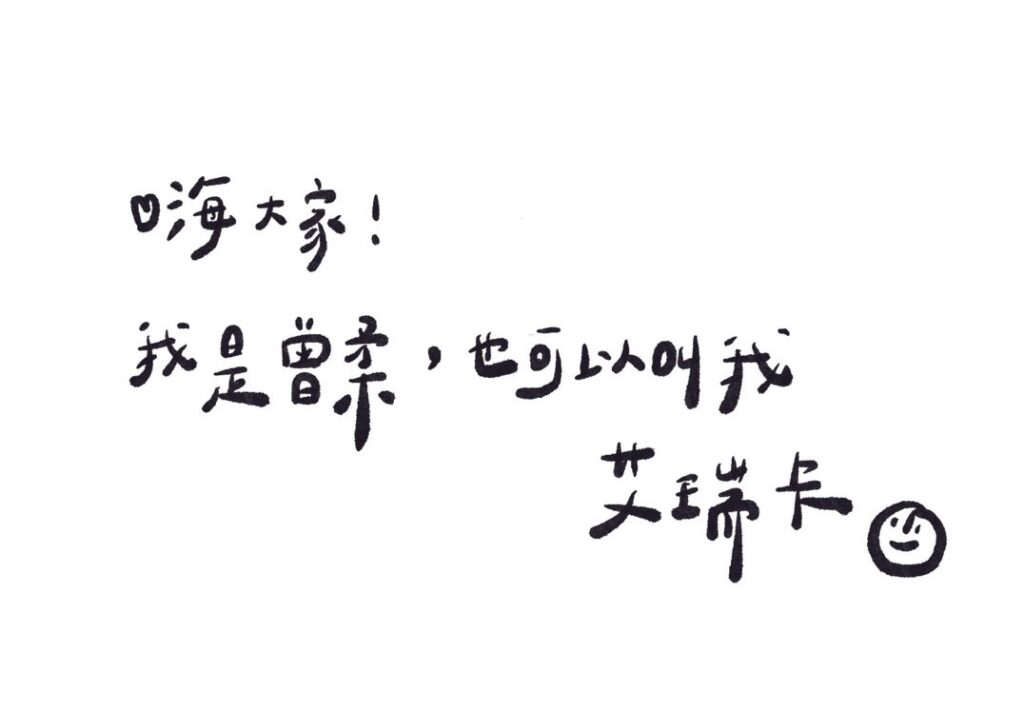 嗨大家!
我是曾柔,也可以叫我
艾瑞卡